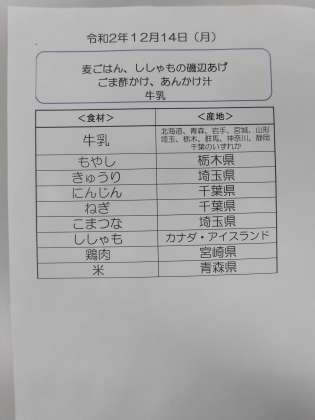 令和2年12月14日（月）
麦ごはん、ししゃもの磯辺あげ
ごま酢かけ、あんかけ汁
牛乳
＜食材＞ ＜産地＞
牛乳 北海道、青森、岩手、宮城、山形
埼玉、栃木、群馬、神奈川、静岡
千葉のいずれか
もやし 栃木県
きゅうり 埼玉県
にんじん 千葉県
ねぎ 千葉県
こまつな 埼玉県
ししゃも カナダ・アイスランド
鶏肉 宮崎県
米 青森県